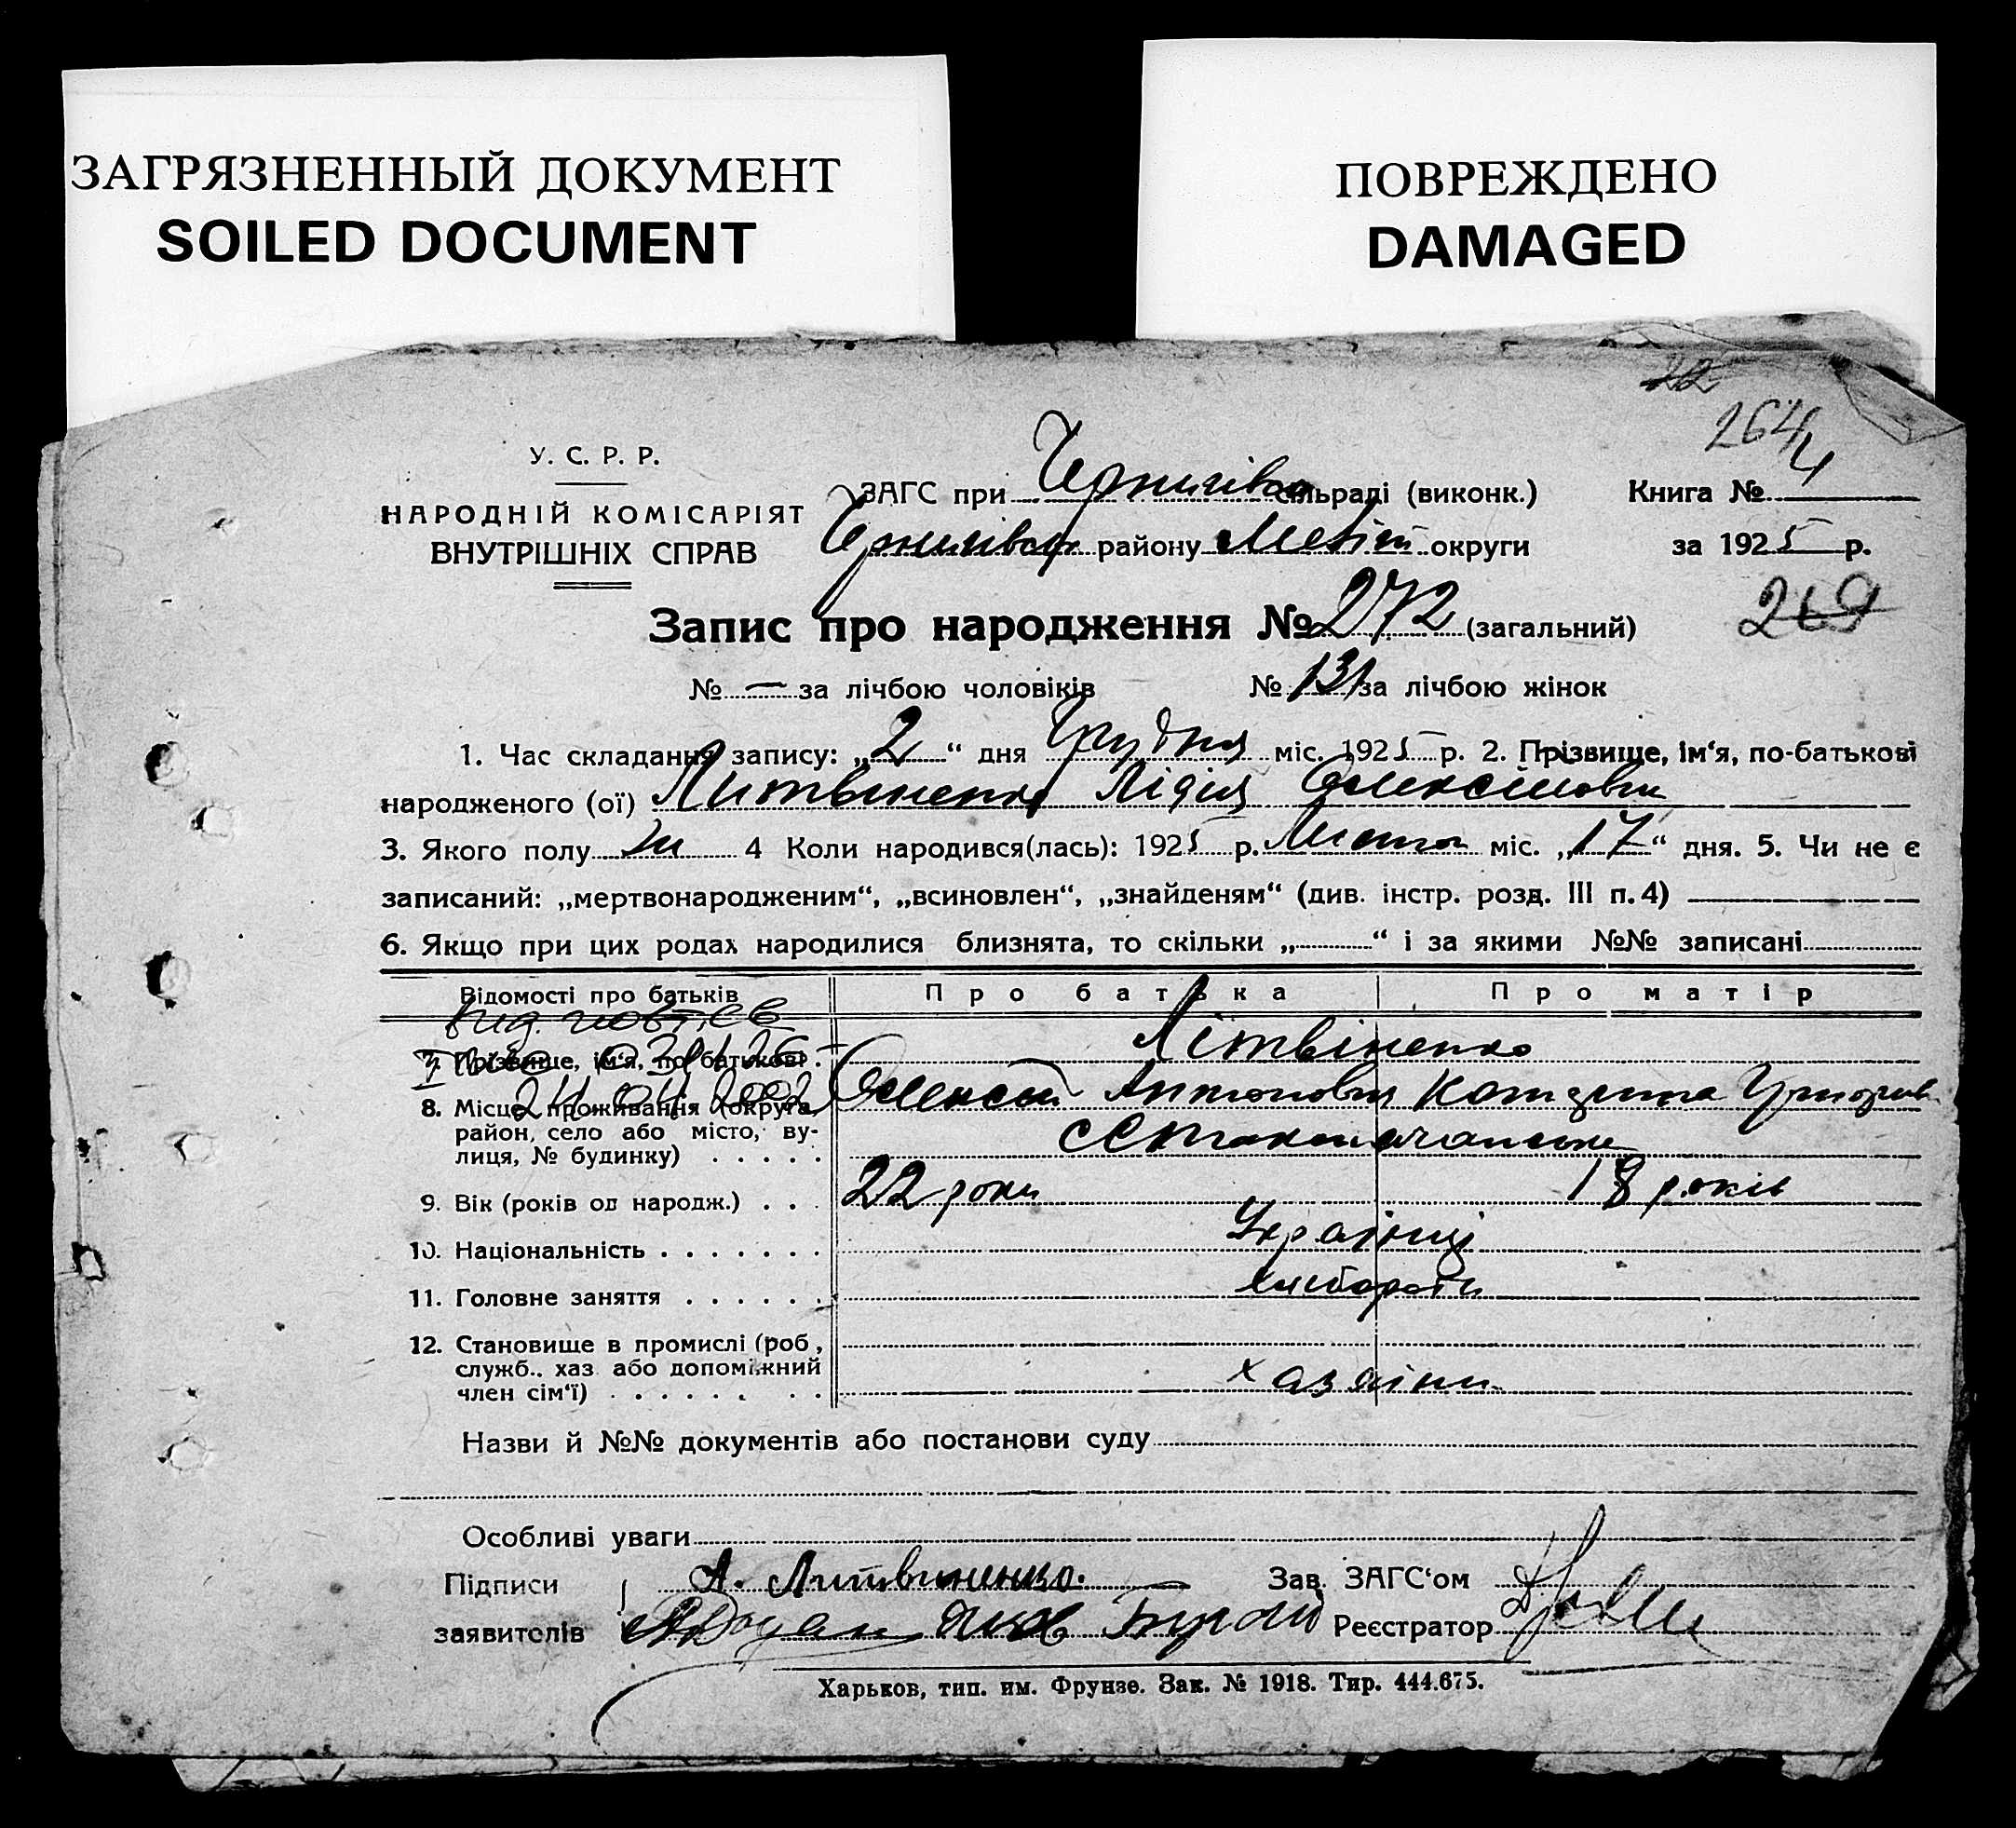 ЗАГРЯЗНЕННЫЙ ДОКУМЕНТ
SOILED DOCUMENT
ПОВРЕЖДЕНО
DAMAGED
22
264
У. С. Р. Р.
НАРОДНІЙ КОМІСАРІЯТ
ВНУТРІШНІХ СПРАВ
ЗАГС при сільраді (виконк.) Книга № 4
району Меліт округи за 1925 р.
Запис про народження № 272 (загальний) 269
№ — за лічбою чоловіків № 131 за лічбою жінок
1. Час складання запису: „2“ дня Грудня міс. 1925 р. 2. Прізвище, ім‘я, по-батькові
народженого (ої) Литвіненко Лідія Олексіївна
3. Якого полу ж 4 Коли народився(лась): 1925 р. міс. „17“ дня. 5. Чи не є
записаний: „мертвонародженим“, „всиновлен“, „знайденям“ (див. інстр. розд. III п. 4)
6. Якщо при цих родах народилися близнята, то скільки „ “ і за якими №№ записані
Відомості про батьків Про батька Про матір
7. Прізвище, ім‘я, по батькові Літвіненко
24.04.2002 Олексій Антонович Катерина Григорів
8. Місце проживання (округа, район, село або місто, вулиця, № будинку)
9. Вік (років од народж.) 22 роки 18 років
10. Національність Українці
11. Головне заняття хлібороби
12. Становище в промислі (роб, служб.. хаз або допоміжний член сім‘ї) хазяіни
Назви й №№ документів або постанови суду
Особливі уваги
Підписи А. Литвиненко. Зав. ЗАГС‘ом
заявителів Реєстратор
Харьков, тип. им. Фрунзе. Зак. № 1918. Тир. 444.675.